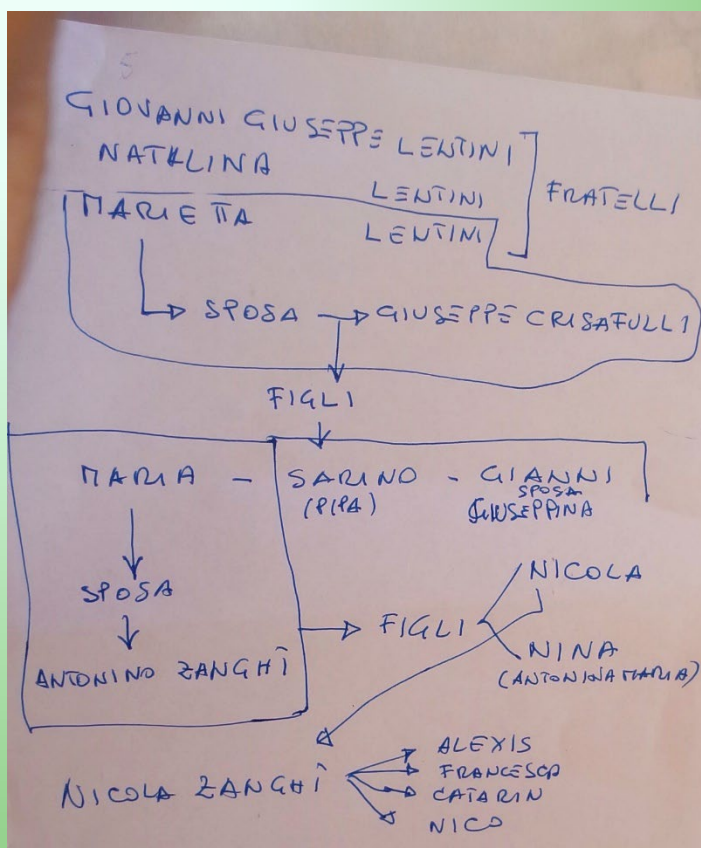 5
GIOVANNI GIUSEPPE LENTINI
NATALINA LENTINI
MARIETTA LENTINI
FRATELLI
SPOSA GIUSEPPE CRISAFULLI
FIGLI
MARIA - SARINO - GIANNI
(PIPA) SPOSA
GIUSEPPINA
SPOSA
ANTONINO ZANGHÌ
FIGLI
NICOLA
NINA
(ANTONINA MARIA)
NICOLA ZANGHÌ
ALEXIS
FRANCESCA
CATARIN
NICO